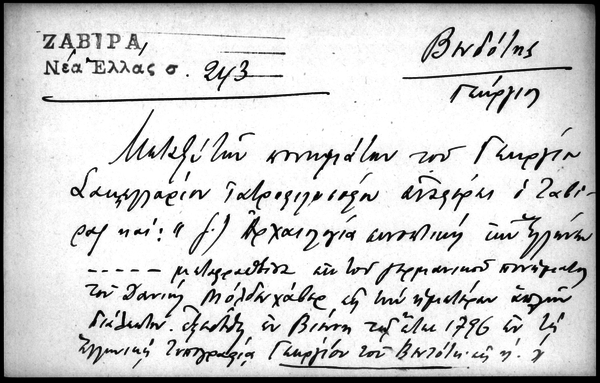 ΖΑΒΙΡΑ,
Νέα Ἑλλας σ. 243
Βενδότης
Γεώργιος
Μεταξὺ τῶν ποιημάτων τοῦ Γεωργίου
Σακελλαρίου Ἰατροφιλοσόφου ἀναφέρει ὁ Ζαβί-
ρας καί: "
Ἀρχαιολογία συνοπτικὴ τῶν Ἑλλήνων
----- μεταφρασθεῖσα ἐκ τοῦ γερμανικοῦ ποιήματος
τοῦ Δανιὴλ εἰς τὴν ἡμετέραν ἁπλῆν
διάλεκτον. ἐξεδόθη ἐν Βιέννῃ τῷ ἔτει 1796 ἐν τῇ
Ἑλληνικῇ Τυπογραφίᾳ Γεωργίου τοῦ Βεντότη εἰς